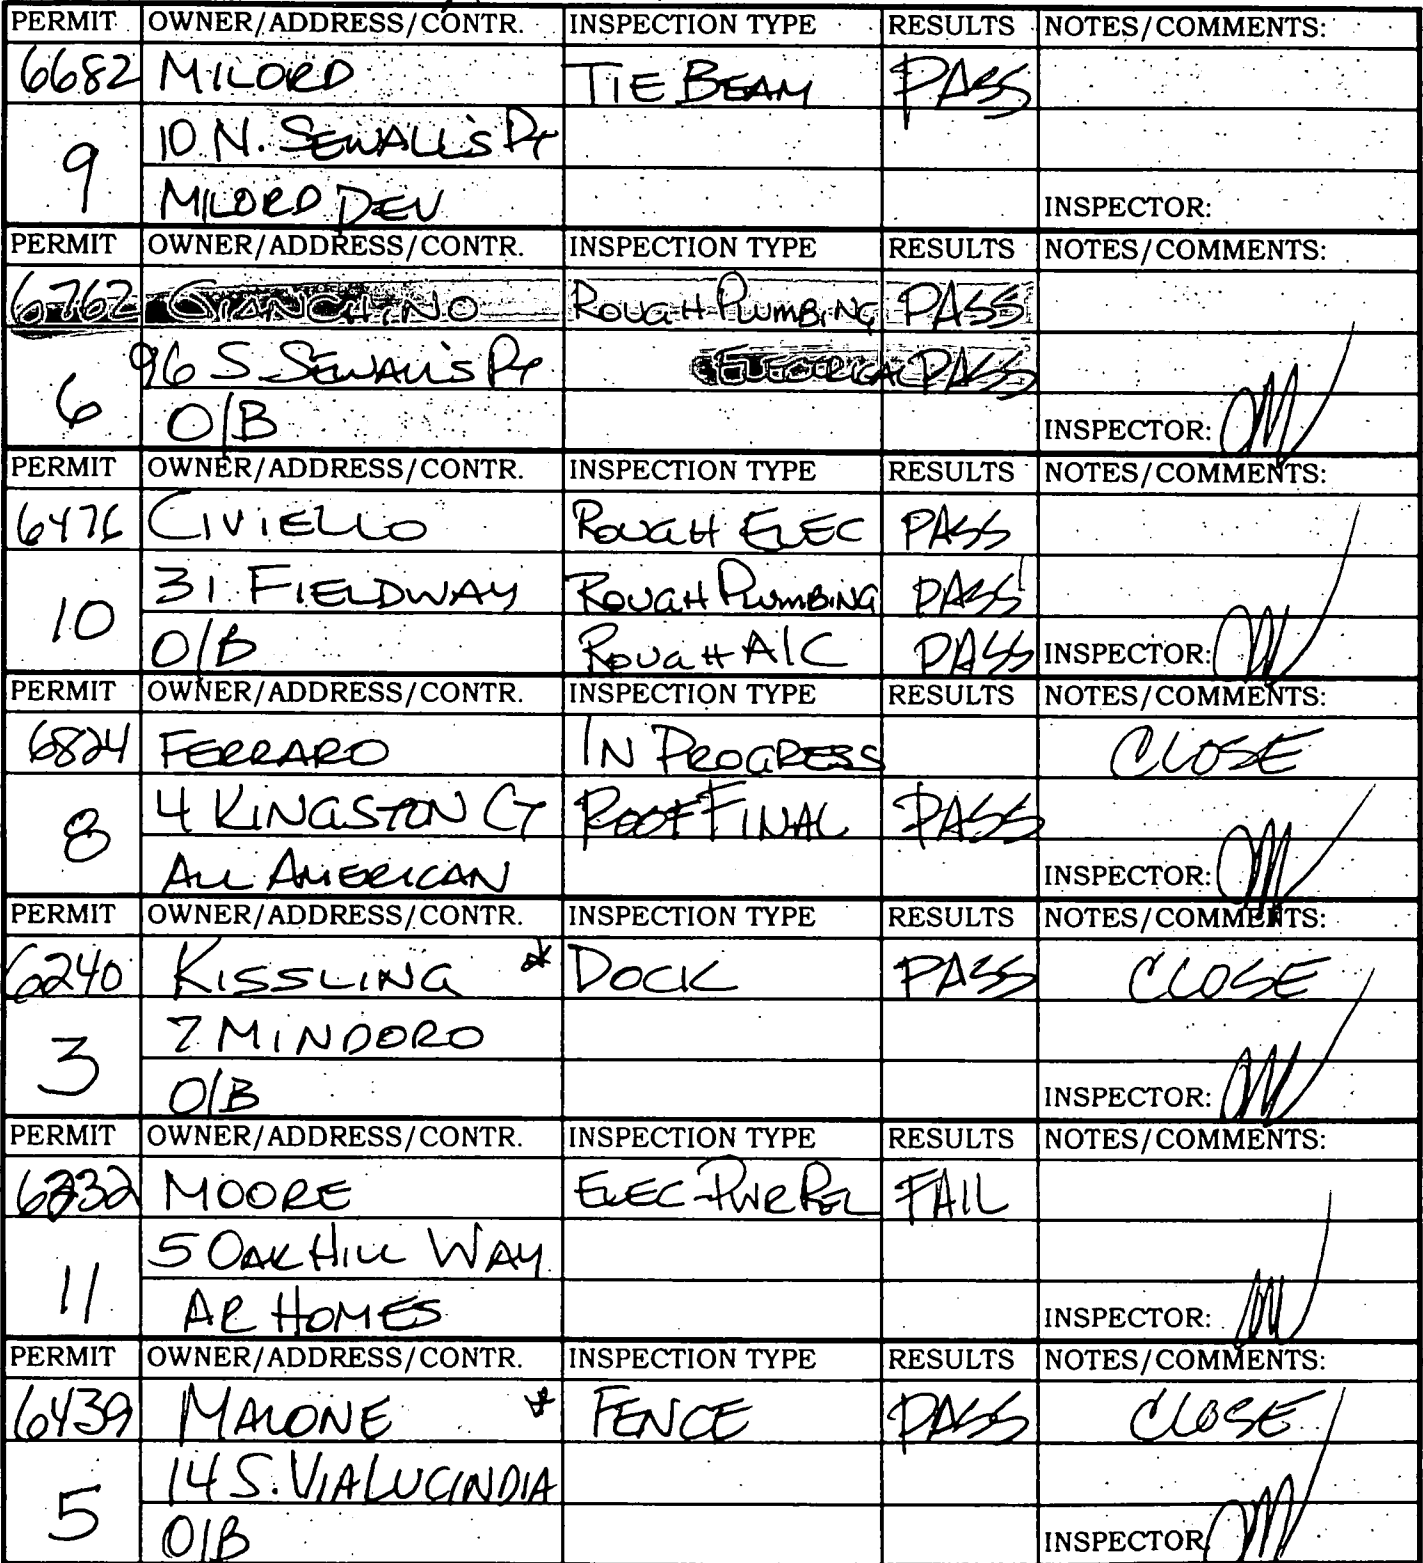 PERMIT OWNER/ADDRESS/CONTR. INSPECTION TYPE RESULTS NOTES/COMMENTS:
6682 MILORD TIE BEAM PASS
9 10 N. SEWALL'S PT
MILORD DEV INSPECTOR:
PERMIT OWNER/ADDRESS/CONTR. INSPECTION TYPE RESULTS NOTES/COMMENTS:
6762 GIANCHINO ROUGH PLUMBING PASS
96 S SEWALL'S PT ELECTRICAL PASS
6 O/B INSPECTOR:
PERMIT OWNER/ADDRESS/CONTR. INSPECTION TYPE RESULTS NOTES/COMMENTS:
6476 CIVIELLO ROUGH ELEC PASS
10 31 FIELDWAY ROUGH PLUMBING PASS
O/B ROUGH A/C PASS INSPECTOR:
PERMIT OWNER/ADDRESS/CONTR. INSPECTION TYPE RESULTS NOTES/COMMENTS:
6824 FERRARO IN PROGRESS CLOSE
8 4 KINGSTON CT ROOF FINAL PASS
ALL AMERICAN INSPECTOR:
PERMIT OWNER/ADDRESS/CONTR. INSPECTION TYPE RESULTS NOTES/COMMENTS:
6240 KISSLING * DOCK PASS CLOSE
3 7 MINDORO
O/B INSPECTOR:
PERMIT OWNER/ADDRESS/CONTR. INSPECTION TYPE RESULTS NOTES/COMMENTS:
6232 MOORE ELEC-PWR REL FAIL
11 5 OAK HILL WAY
AR HOMES INSPECTOR:
PERMIT OWNER/ADDRESS/CONTR. INSPECTION TYPE RESULTS NOTES/COMMENTS:
6439 MALONE * FENCE PASS CLOSE
5 14 S. VIA LUCINDIA
O/B INSPECTOR